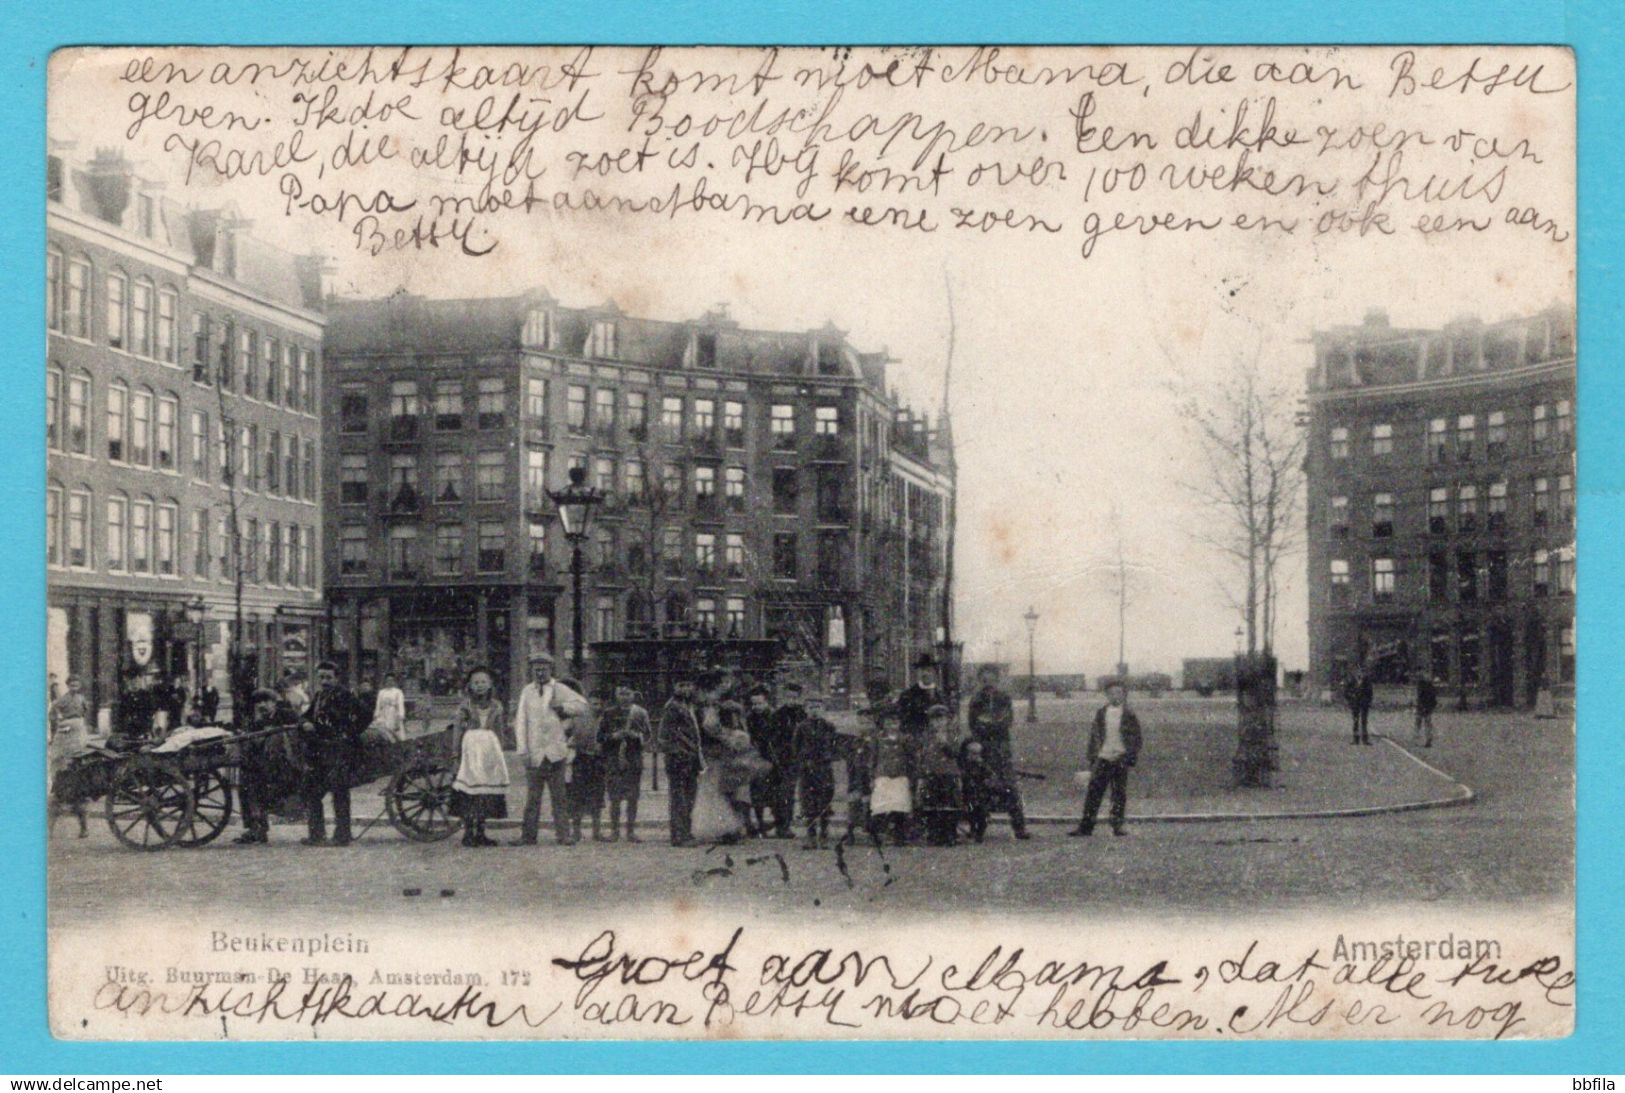 een anzichtskaart komt moet Mama, die aan Betsy
geven. Ik doe altijd Boodschappen. Een dikke zoen van
Karel, die altijd zoet is. Hij komt over 100 weken thuis
Papa moet aan Mama eene zoen geven en ook een aan
Betsy.
Beukenplein
Amsterdam
Uitg. Buurman-De Haan, Amsterdam. 172
Groet aan Mama, dat alle twee
anzichtskaarten aan Betsy moet hebben. Als er nog
www.delcampe.net
bbfila